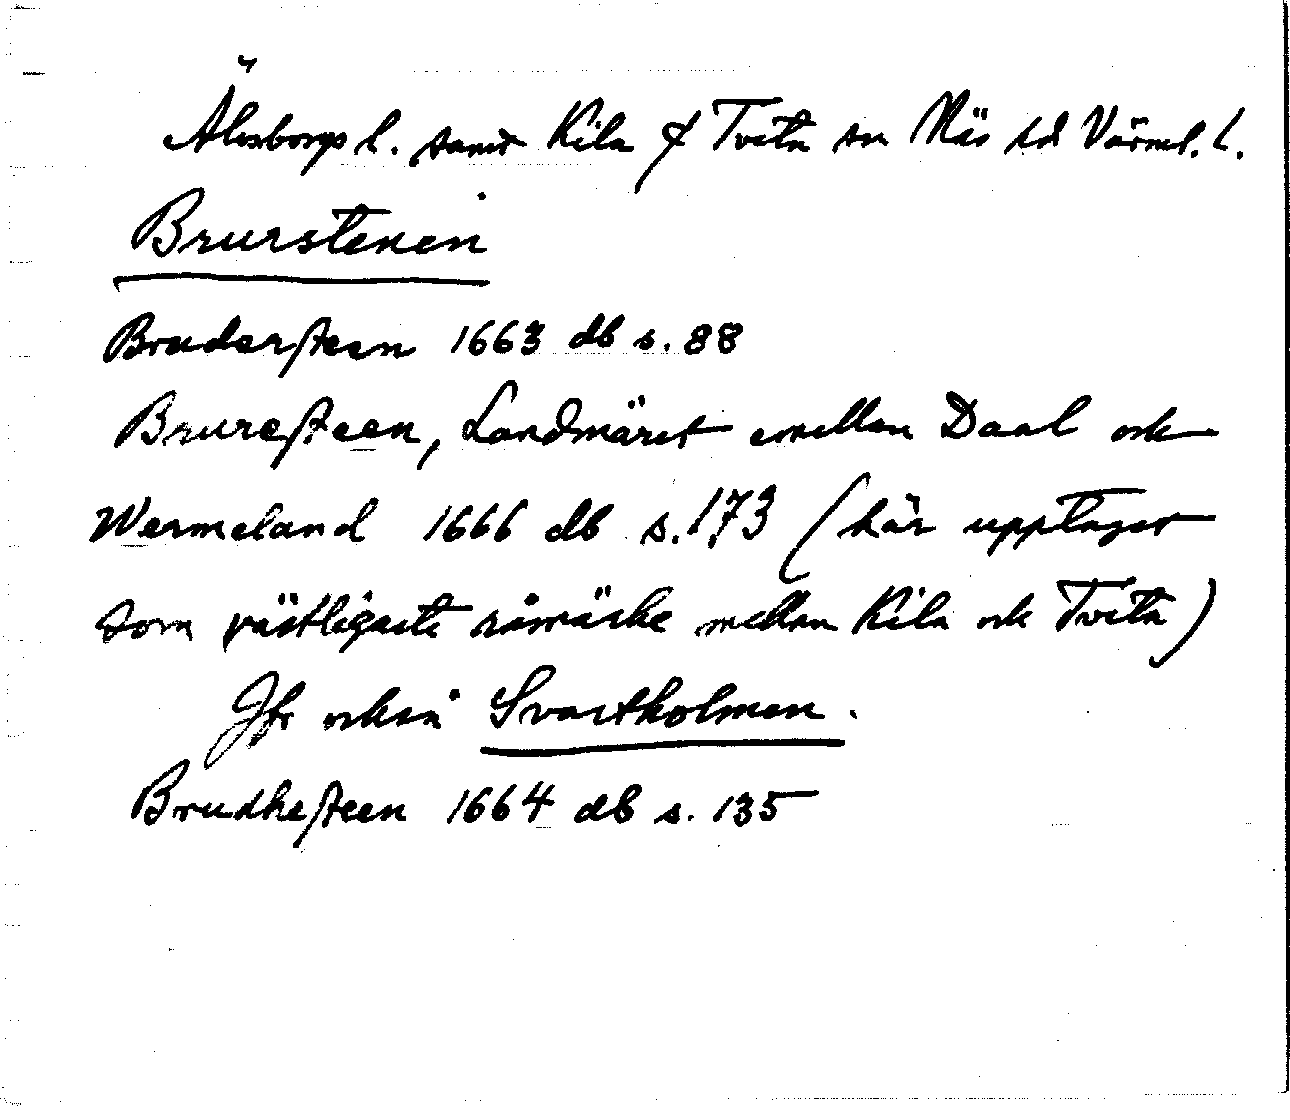 Älvsborgs l. samt Kila & Tveta sn Näs hd Värml. l.
Brurstenen
Brudersteen 1663 db s. 88
Bruresteen, Landmäret emellan Daal och
Wermeland 1666 db s. 173 (här upptaget
som västligaste råmärke mellan Kila och Tveta)
Jfr också Svartholmen.
Brudhesteen 1664 db s. 135